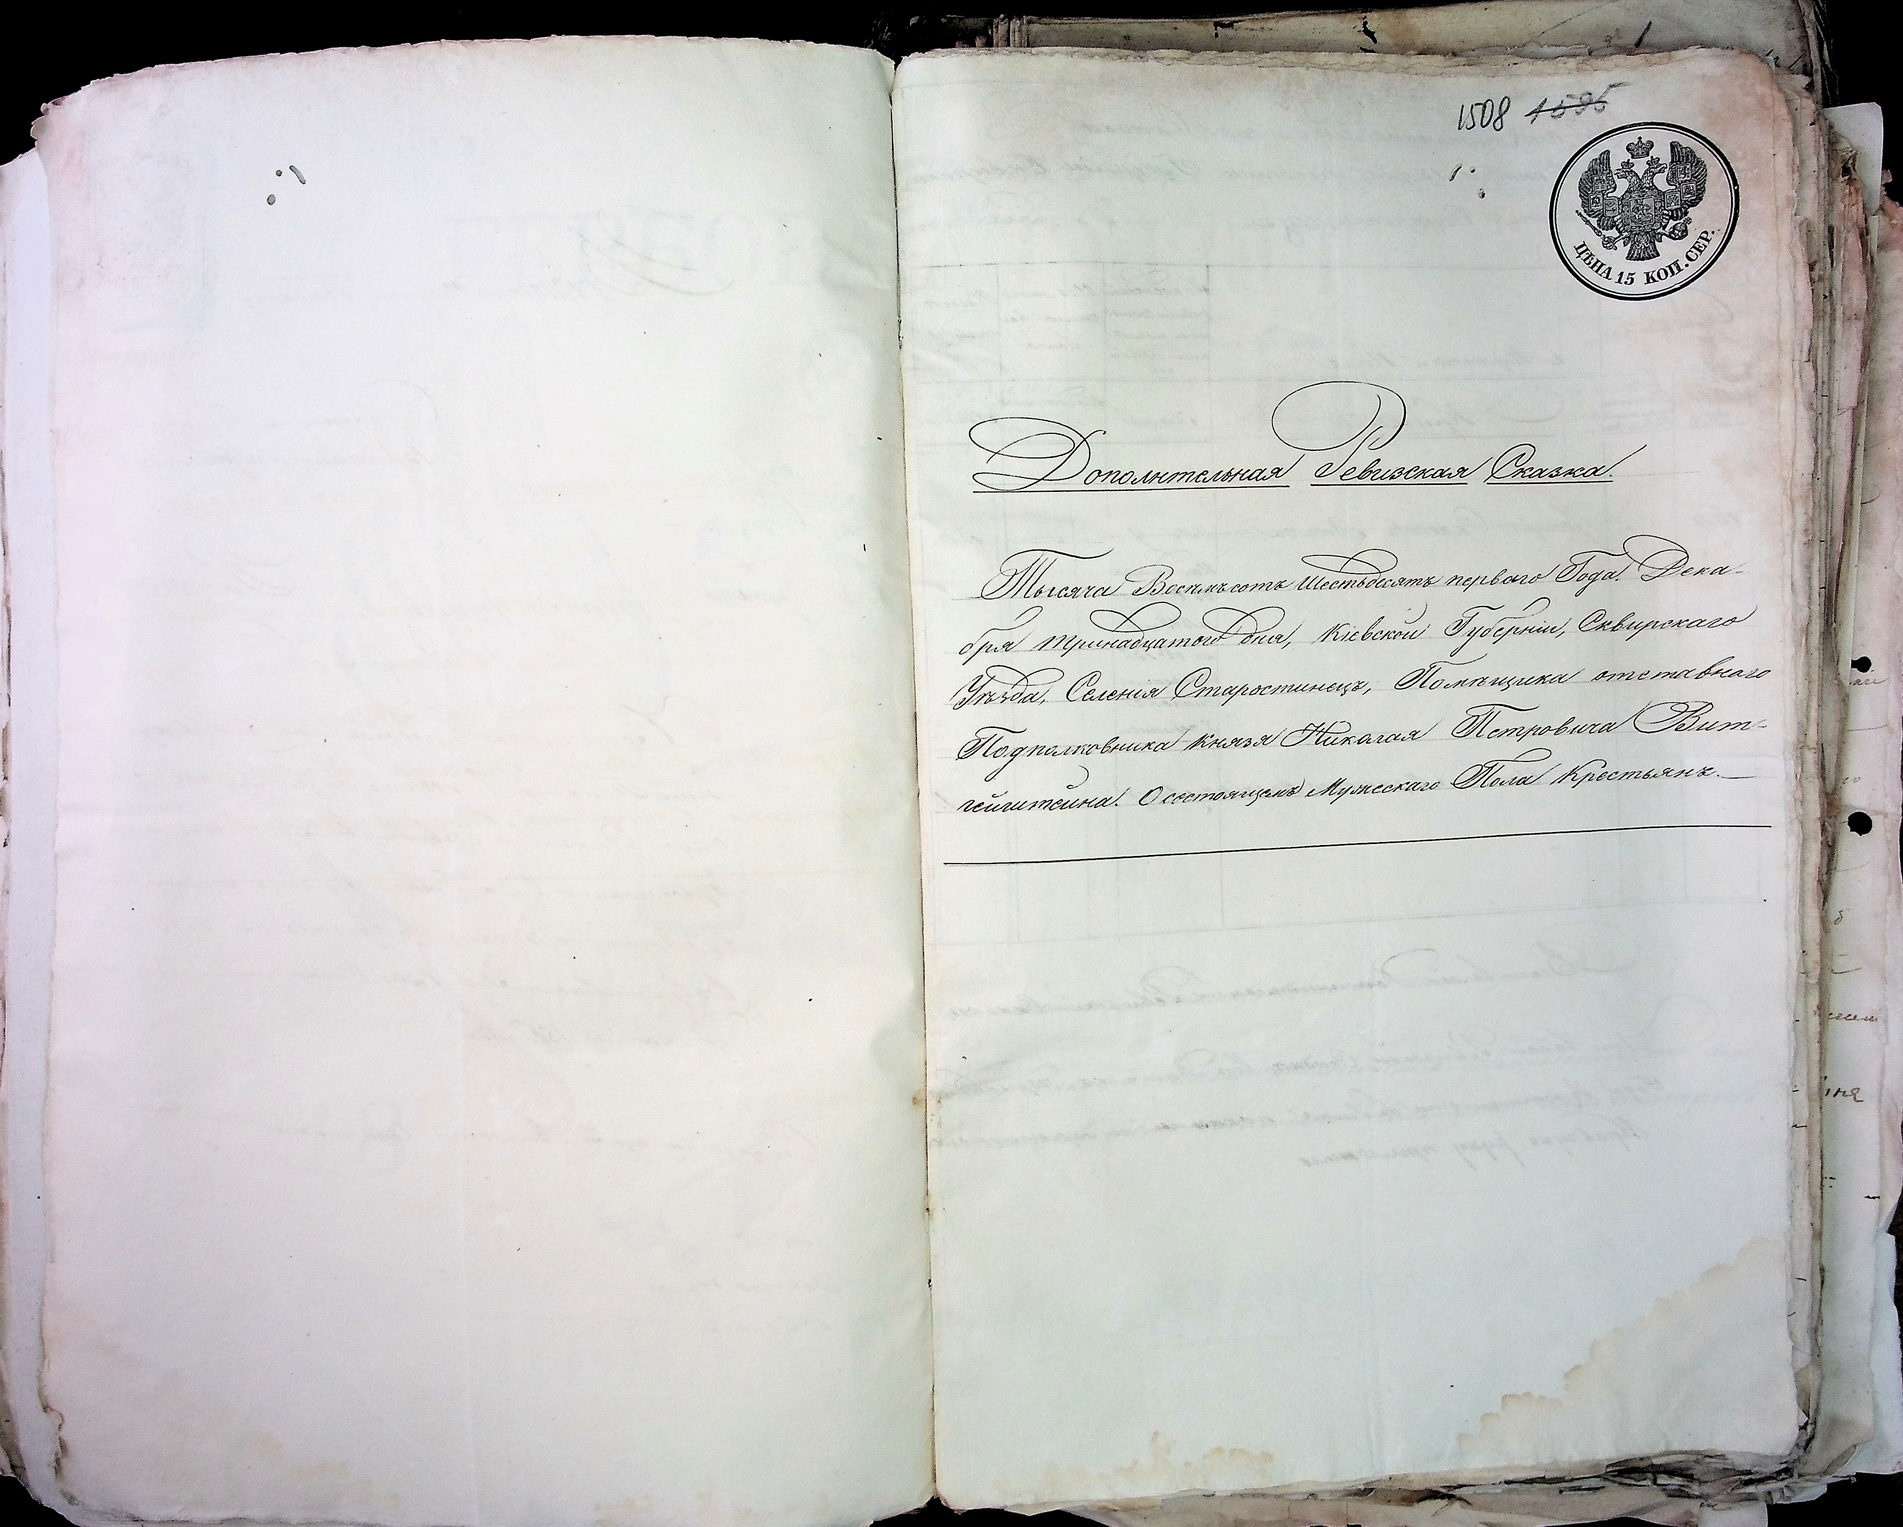 1508 1595
ЦѢНА 15 КОП. СЕР.
Дополнтельная Ревизская Сказка.
Тысяча Восемьсотъ Шестьдесятъ перваго Года. Дека-
бря тринадцатого дня, Кіевской Губерніи, Сквирскаго
Уѣзда, Селенія Старостинецъ, Помѣщика отставнаго
Подполковника Князя Николая Петровича Вит-
гейгштейна. О состоящемъ Мужескаго Пола Крестьянъ.